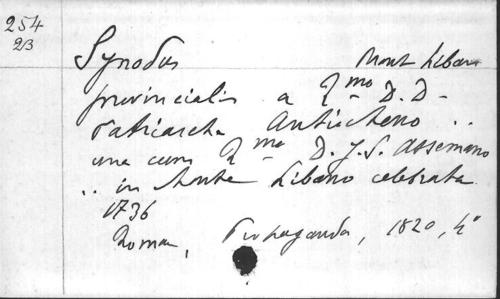 254
2/3
Synodus Mont Liban
provincialis a R^mo D. D.
Patriarcha Antiocheno ..
una cum R^mo D. J. S. Assemano
.. in Monte Libano celebrata
1736
Romae, Propaganda, 1820, 4°